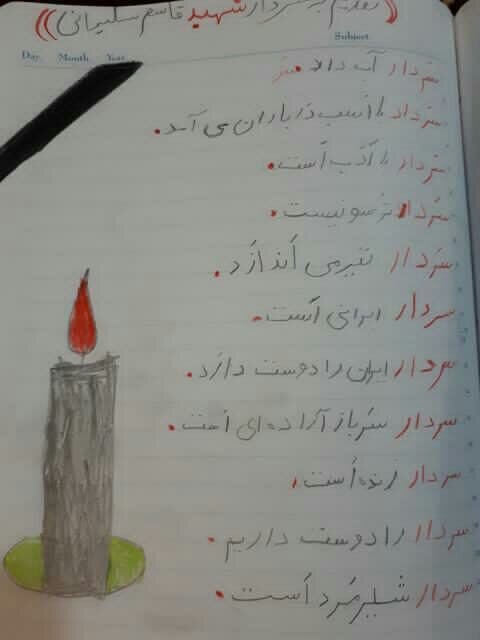 ((تقدیم به سردار شهید قاسم سلیمانی))
Subject:
Day Month Year
سردار آب داد.
سردار با اسب در باران می آمد.
سردار با ادب است.
سردار ترسو نیست.
سردار تیر می اندازد.
سردار ایرانی است.
سردار ایران را دوست دارد.
سردار سرباز آزاده ای است.
سردار زنده است.
سردار را دوست داریم.
سردار شیر مرد است.